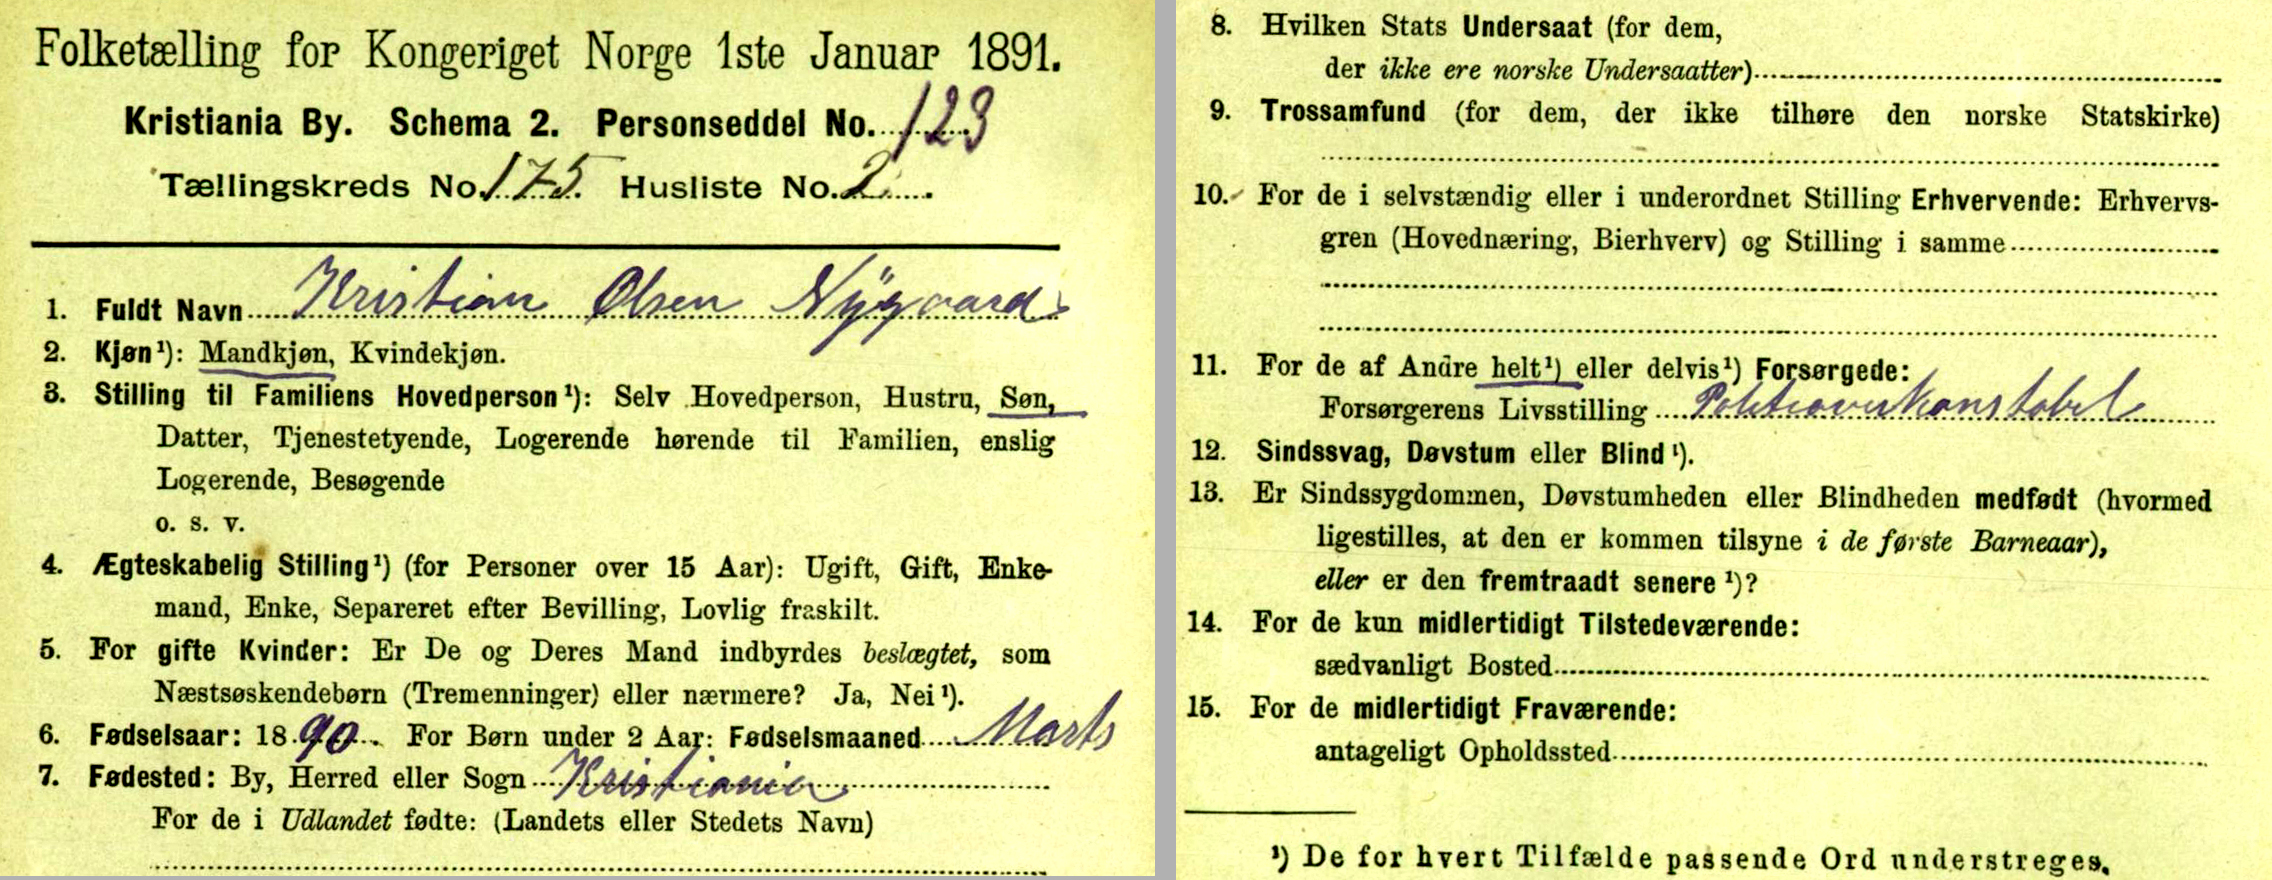 Folketælling for Kongeriget Norge 1ste Januar 1891.
Kristiania By. Schema 2. Personseddel No. 123
Tællingskreds No. 175. Husliste No. 2.
1. Fuldt Navn Kristian Olsen Nÿgaard
2. Kjøn¹): Mandkjøn, Kvindekjøn.
3. Stilling til Familiens Hovedperson¹): Selv Hovedperson, Hustru, Søn,
Datter, Tjenestetyende, Logerende hørende til Familien, enslig
Logerende, Besøgende
o. s. v.
4. Ægteskabelig Stilling¹) (for Personer over 15 Aar): Ugift, Gift, Enke-
mand, Enke, Separeret efter Bevilling, Lovlig fraskilt.
5. For gifte Kvinder: Er De og Deres Mand indbyrdes beslægtet, som
Næstsøskendebørn (Tremenninger) eller nærmere? Ja, Nei¹).
6. Fødselsaar: 1890. For Børn under 2 Aar: Fødselsmaaned Marts
7. Fødested: By, Herred eller Sogn Kristiania
For de i Udlandet fødte: (Landets eller Stedets Navn)
8. Hvilken Stats Undersaat (for dem,
der ikke ere norske Undersaatter)
9. Trossamfund (for dem, der ikke tilhøre den norske Statskirke)
10. For de i selvstændig eller i underordnet Stilling Erhvervende: Erhvervs-
gren (Hovednæring, Bierhverv) og Stilling i samme
11. For de af Andre helt¹) eller delvis¹) Forsørgede:
Forsørgerens Livsstilling Politioverkonstabel
12. Sindssvag, Døvstum eller Blind¹).
13. Er Sindssygdommen, Døvstumheden eller Blindheden medfødt (hvormed
ligestilles, at den er kommen tilsyne i de første Barneaar),
eller er den fremtraadt senere¹)?
14. For de kun midlertidigt Tilstedeværende:
sædvanligt Bosted
15. For de midlertidigt Fraværende:
antageligt Opholdssted
¹) De for hvert Tilfælde passende Ord understreges.